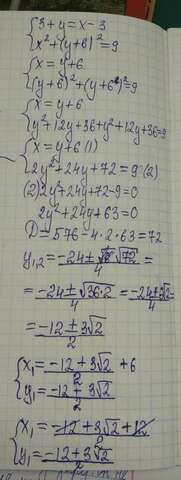 {3+y=x-3
{x²+(y+6)²=9
{x=y+6
{(y+6)²+(y+6)²=9
{x=y+6
{y²+12y+36+y²+12y+36=9
{x=y+6 (1)
{2y²+24y+72=9 (2)
(2)2y²+24y+72-9=0
2y²+24y+63=0
D=576-4·2·63=72
y₁,₂=(-24±√72)/4=
=(-24±√36·2)/4=(-24±6√2)/4=
=(-12±3√2)/2
{x₁=(-12+3√2)/2+6
{y₁=(-12+3√2)/2
{x₁=(-12+3√2+12)/2
{y₁=(-12+3√2)/2